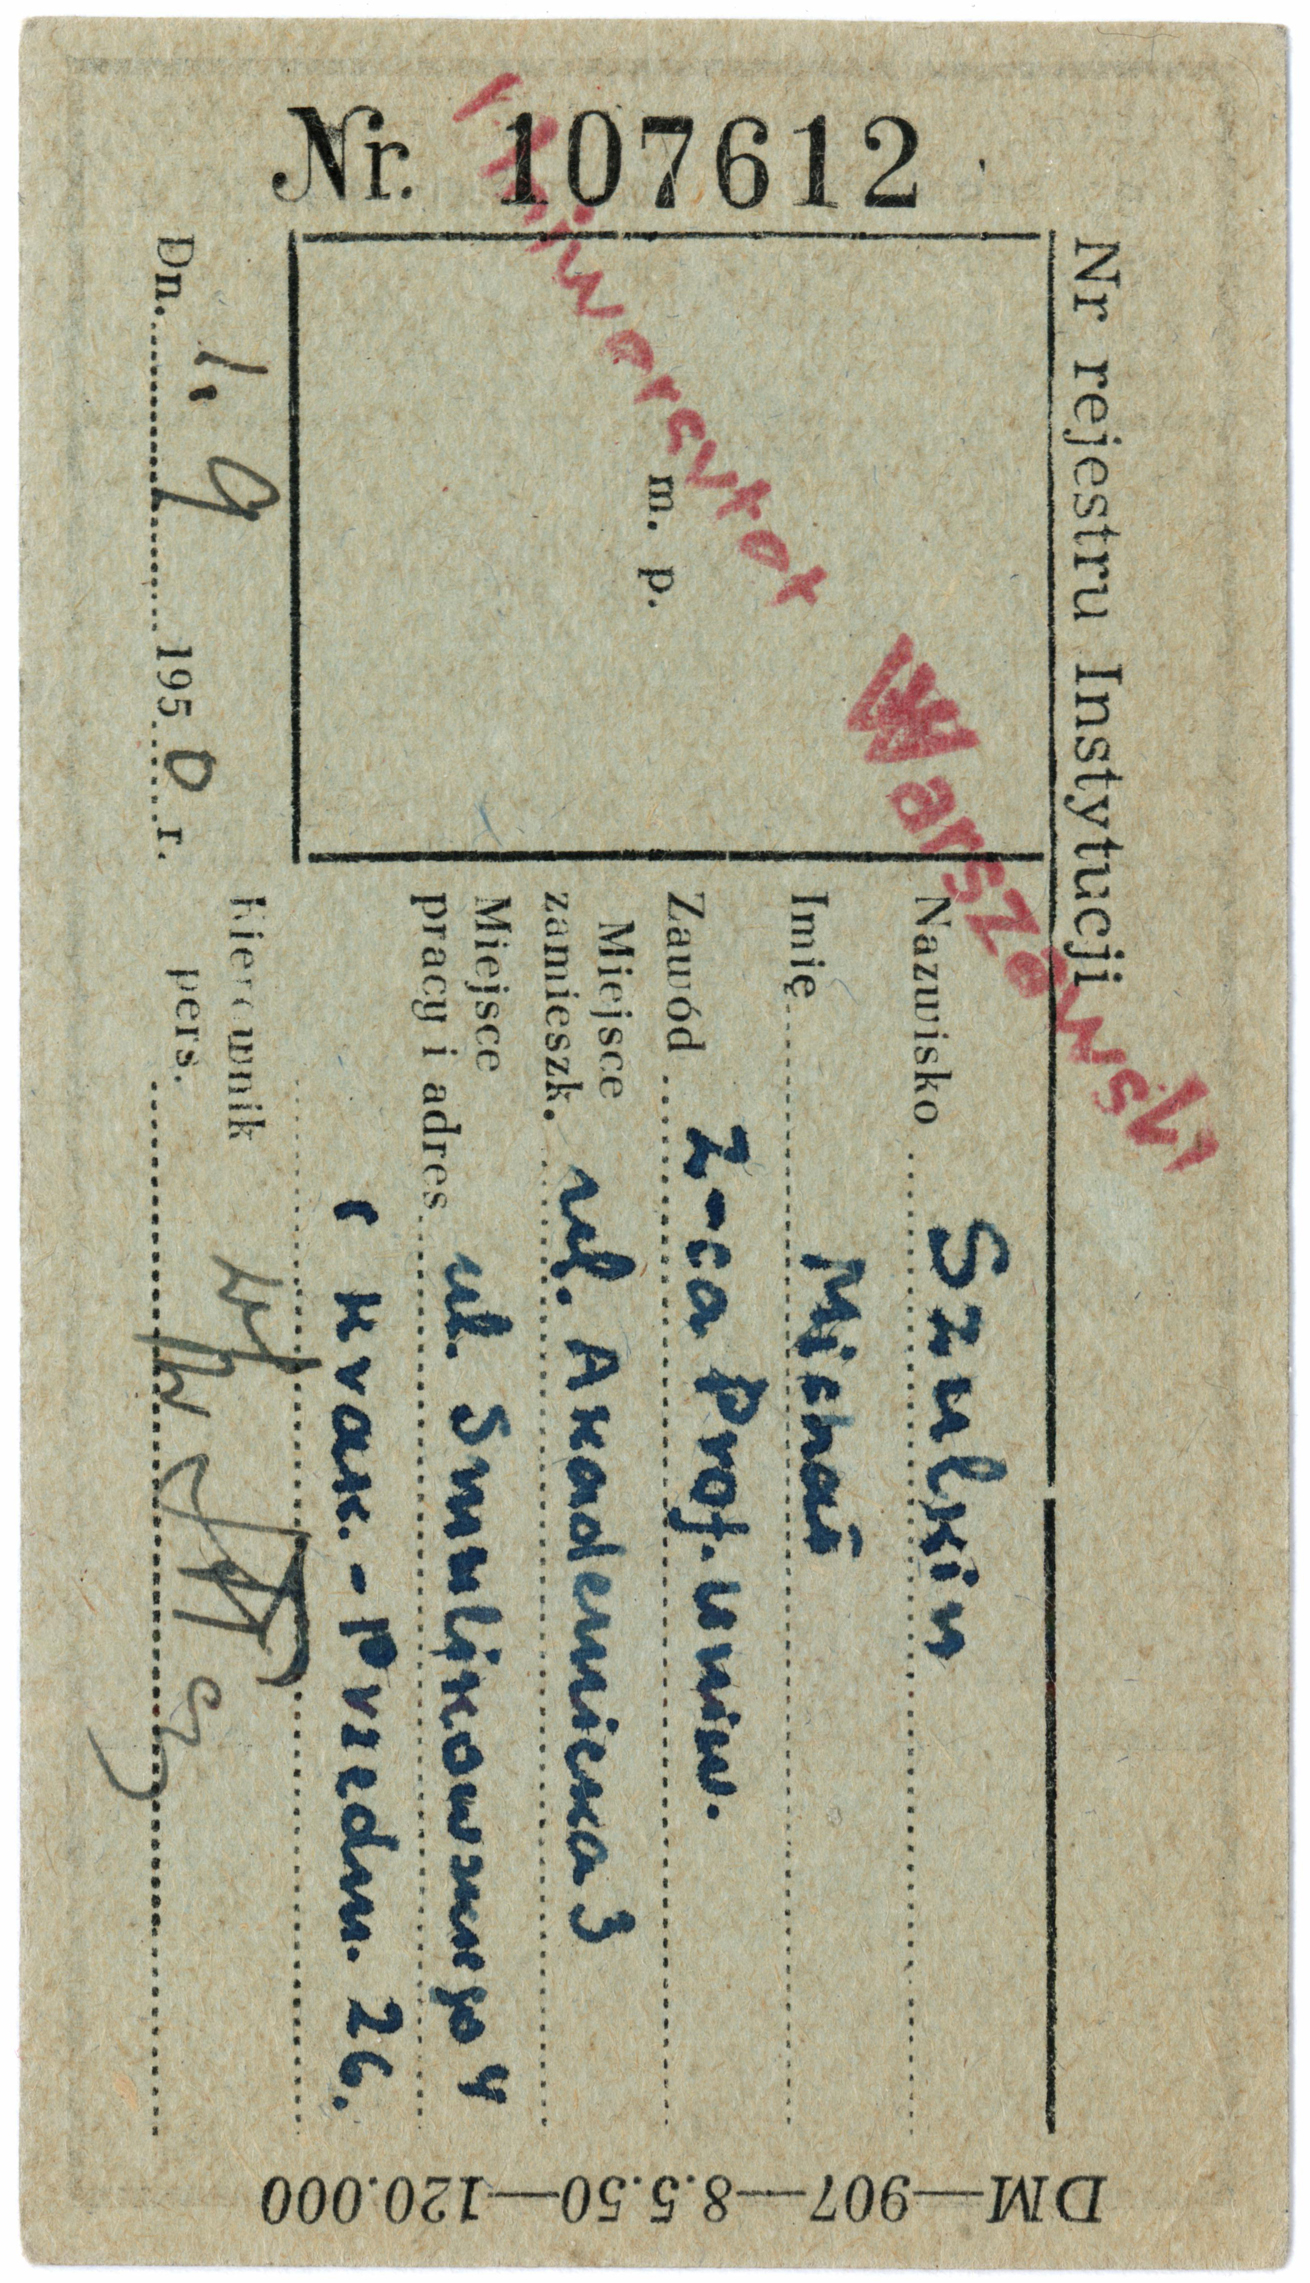 Nr. 107612
Nr rejestru Instytucji
Uniwersytet Warszawski
m. p.
Nazwisko Szulkin
Imię Michał
Zawód Z-ca prof. uniw.
Miejsce
zamieszk. ul. Akademicka 3
Miejsce
pracy i adres ul. Smulikowskiego 4
Krak.-Przedm. 26.
Kierownik
pers.
Dn. 1. 9 1950 r.
DM—907—8.5.50—120.000